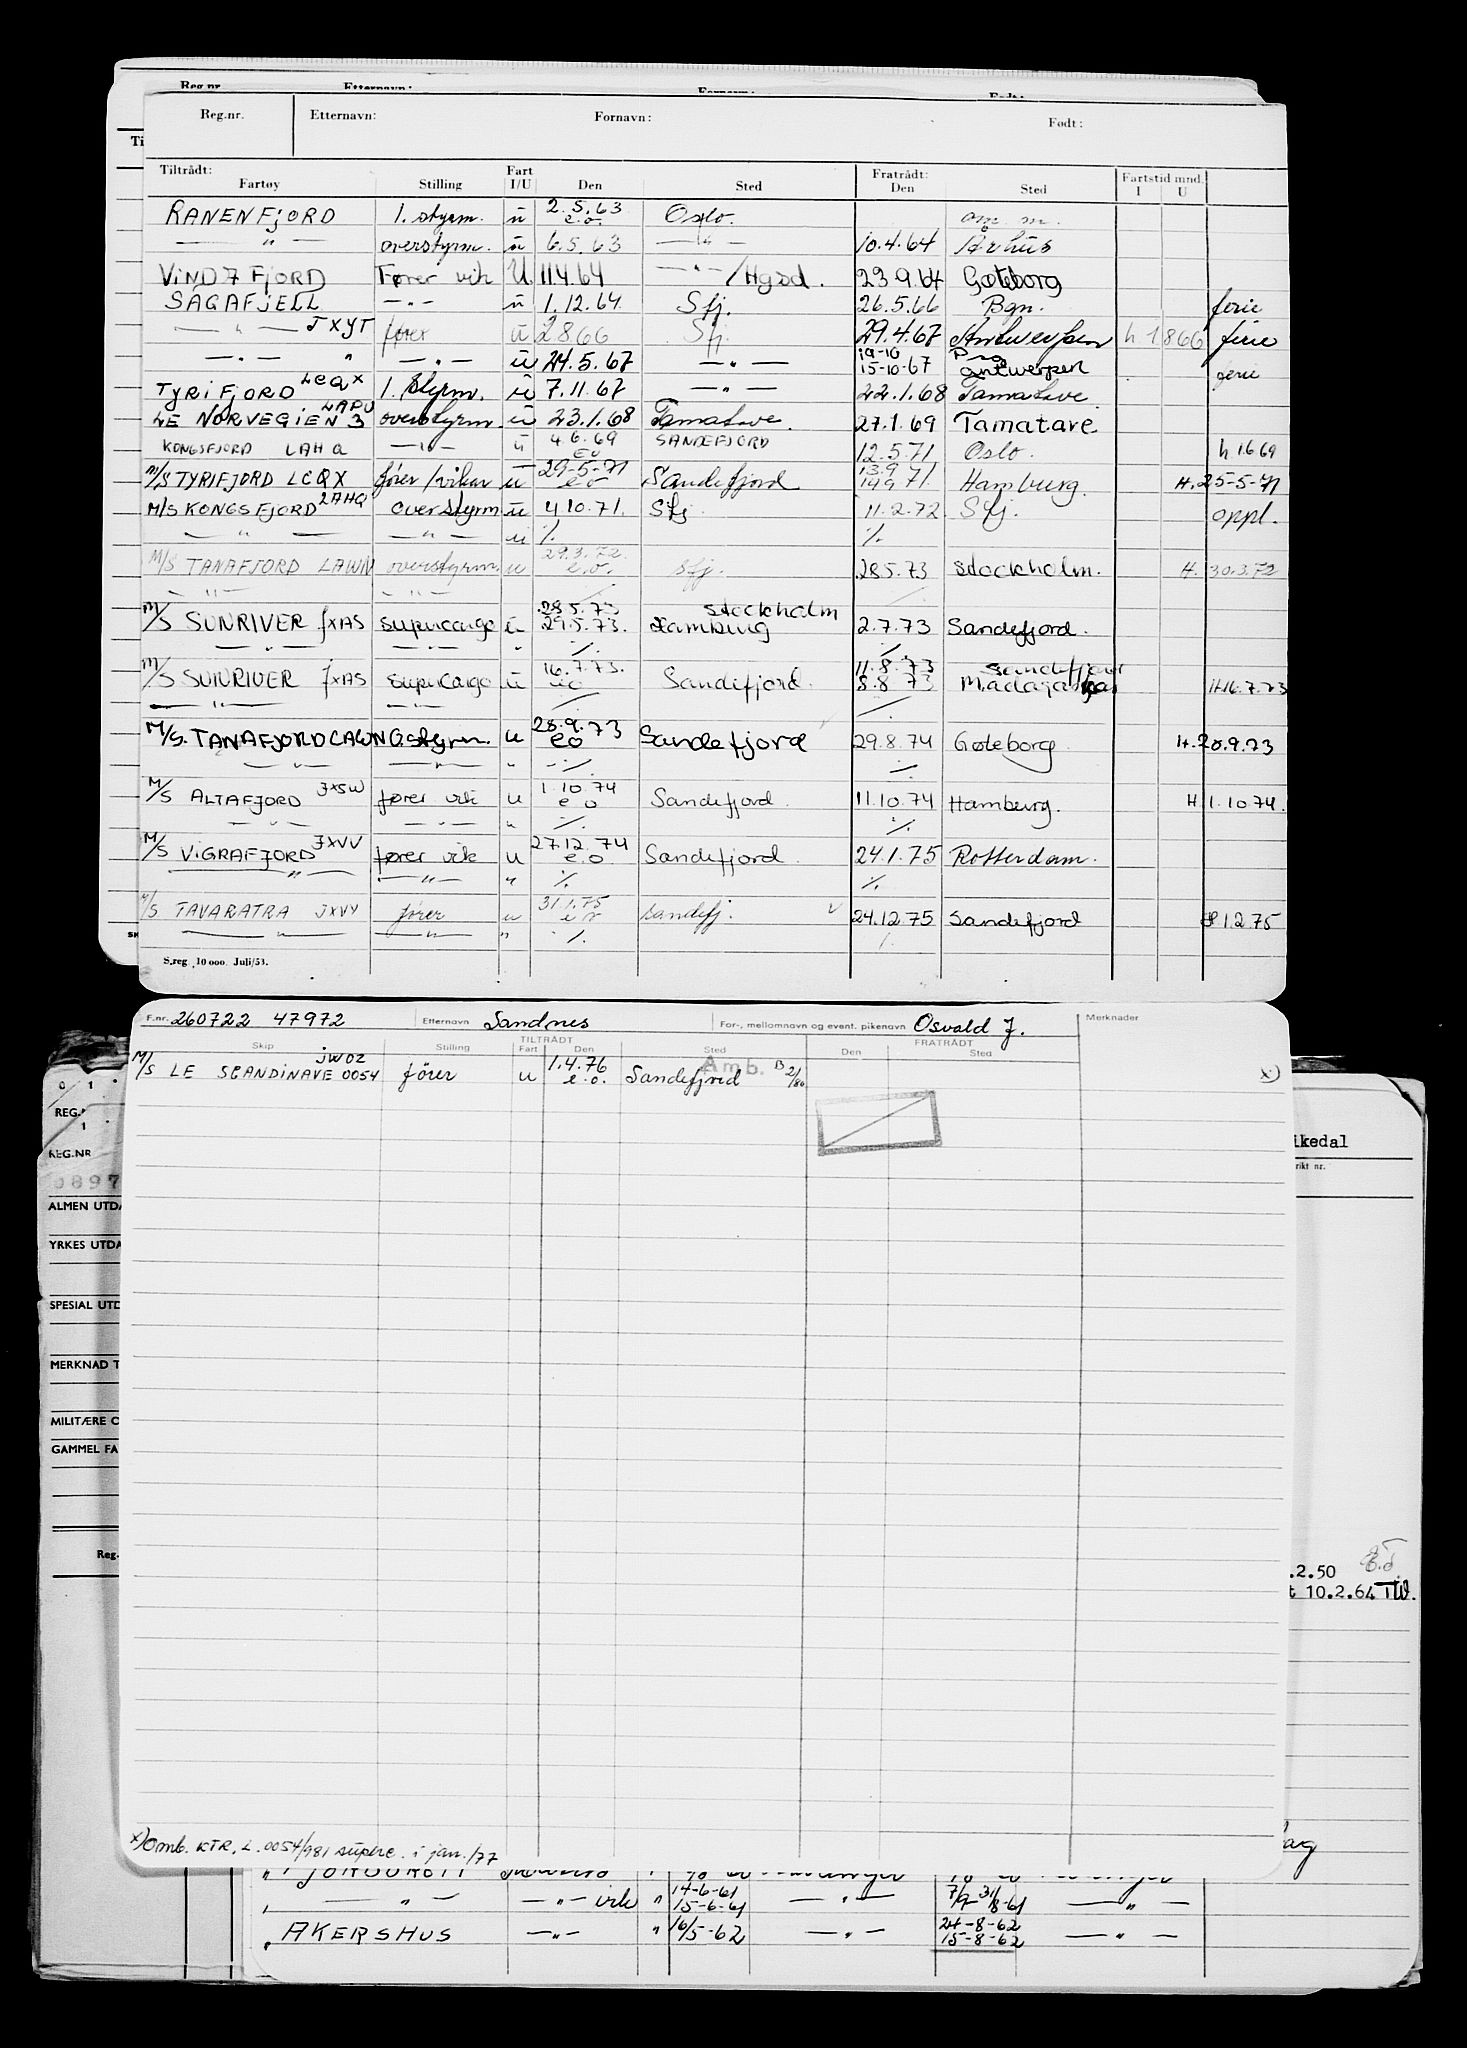 Reg.nr. Etternavn: Fornavn: Født:
Reg.nr. Etternavn: Fornavn: Født:
Tiltrådt: Fart Fratrådt: Fartstid mnd.
Fartøy Stilling I/U Den Sted Den Sted I U
RANENFJORD 1. styrm. u 2.5.63 e.o. Oslo.
— " — overstyrm. u 6.5.63 — " — 10.4.64 Århus
VINDAFJORD Fører vik U 11.4.64 — " — / Hgsd. 23.9.64 Gøteborg
SAGAFJELL — " — u 1.12.64 Sfj. 26.5.66 Bgn. ferie
— " — JXYT fører u 2.8.66 Sfj. 29.4.67 Antwerpen h 1.8.66 ferie
— " — " — " — u 24.5.67 — " — 19-10 15-10-67 antwerpen ferie
TYRIFJORD LCQX 1. styrm. u 7.11.67 — " — 22.1.68 Tamatave
LE NORVEGIEN LAPU overstyrm u 23.1.68 Tamatave 27.1.69 Tamatave
KONGSFJORD LAHQ — " — u 4.6.69 eo SANDEFJORD 12.5.71 Oslo. h. 1.6.69
M/S TYRIFJORD LCQX fører/vikar u 29-5-71 eo Sandefjord 13.9 14.9.71 Hamburg. H. 25-5-71
M/S KONGSFJORD LAHQ overstyrm u 4.10.71. Sfj 11.2.72 Sfj. oppl.
— " — — " — u ·/. ·/.
M/S TANAFJORD LAWN overstyrm. u 29.3.72. e.o. sfj. 28.5.73 stockholm. H. 30.3.72
— " — — " —
M/S SUNRIVER JXAS supercargo u 28.5.73 29.5.73. stockholm Hamburg 2.7.73 Sandefjord.
— " — — " — " ·/. ·/.
M/S SUNRIVER JXAS supercargo u 16.7.73. eo Sandefjord 11.8.73 8.8.73 Sandefjord Madagaskar H 16.7.73
— " — — " —
M/S. TANAFJORD LAWN O.styrm. u 28.9.73 eo Sandefjord 29.8.74 Gøteborg H. 28.9.73
— " — — " — " ·/. ·/.
M/S ALTAFJORD JXSW fører vik u 1.10.74 eo Sandefjord 11.10.74 Hamburg. H. 1.10.74.
— " — — " — " ·/. ·/.
M/S VIGRAFJORD JXVV fører vik u 27.12.74 e.o Sandefjord 24.1.75 Rotterdam.
— " — — " — " ·/. ·/.
M/S TAVARATRA JXVY fører u 31.1.75 eo sandefj. 24.12.75 Sandefjord 1.2.75
— " — — " — " ·/.
S.reg. 10 000. Juli/53.
F.nr. 260722 47972 Etternavn Sandnes For-, mellomnavn og event. pikenavn Osvald J. Merknader
TILTRÅDT FRATRÅDT
Skip Stilling Fart Den Sted Den Sted
M/S LE SCANDINAVE JWOZ 0054 fører u 1.4.76 e.o. Sandefjord Amb. B 2/80 x)
REG.
REG.NR
0897
ALMEN UTDA
YRKES UTDA
SPESIAL UTD
MERKNAD T
MILITÆRE O
GAMMEL FA
Reg.
ikedal
rikt nr.
.2.50
t 10.2.64 TW.
x) Omb. KTR. L. 0054/981 supere. i jan./77
— " — — " — vik " 14-6-61 15-6-61 — " — 7/9 31/8-61 — " —
AKERSHUS — " — " 16/5-62 — " — 24-8-62 15-8-62 — " —